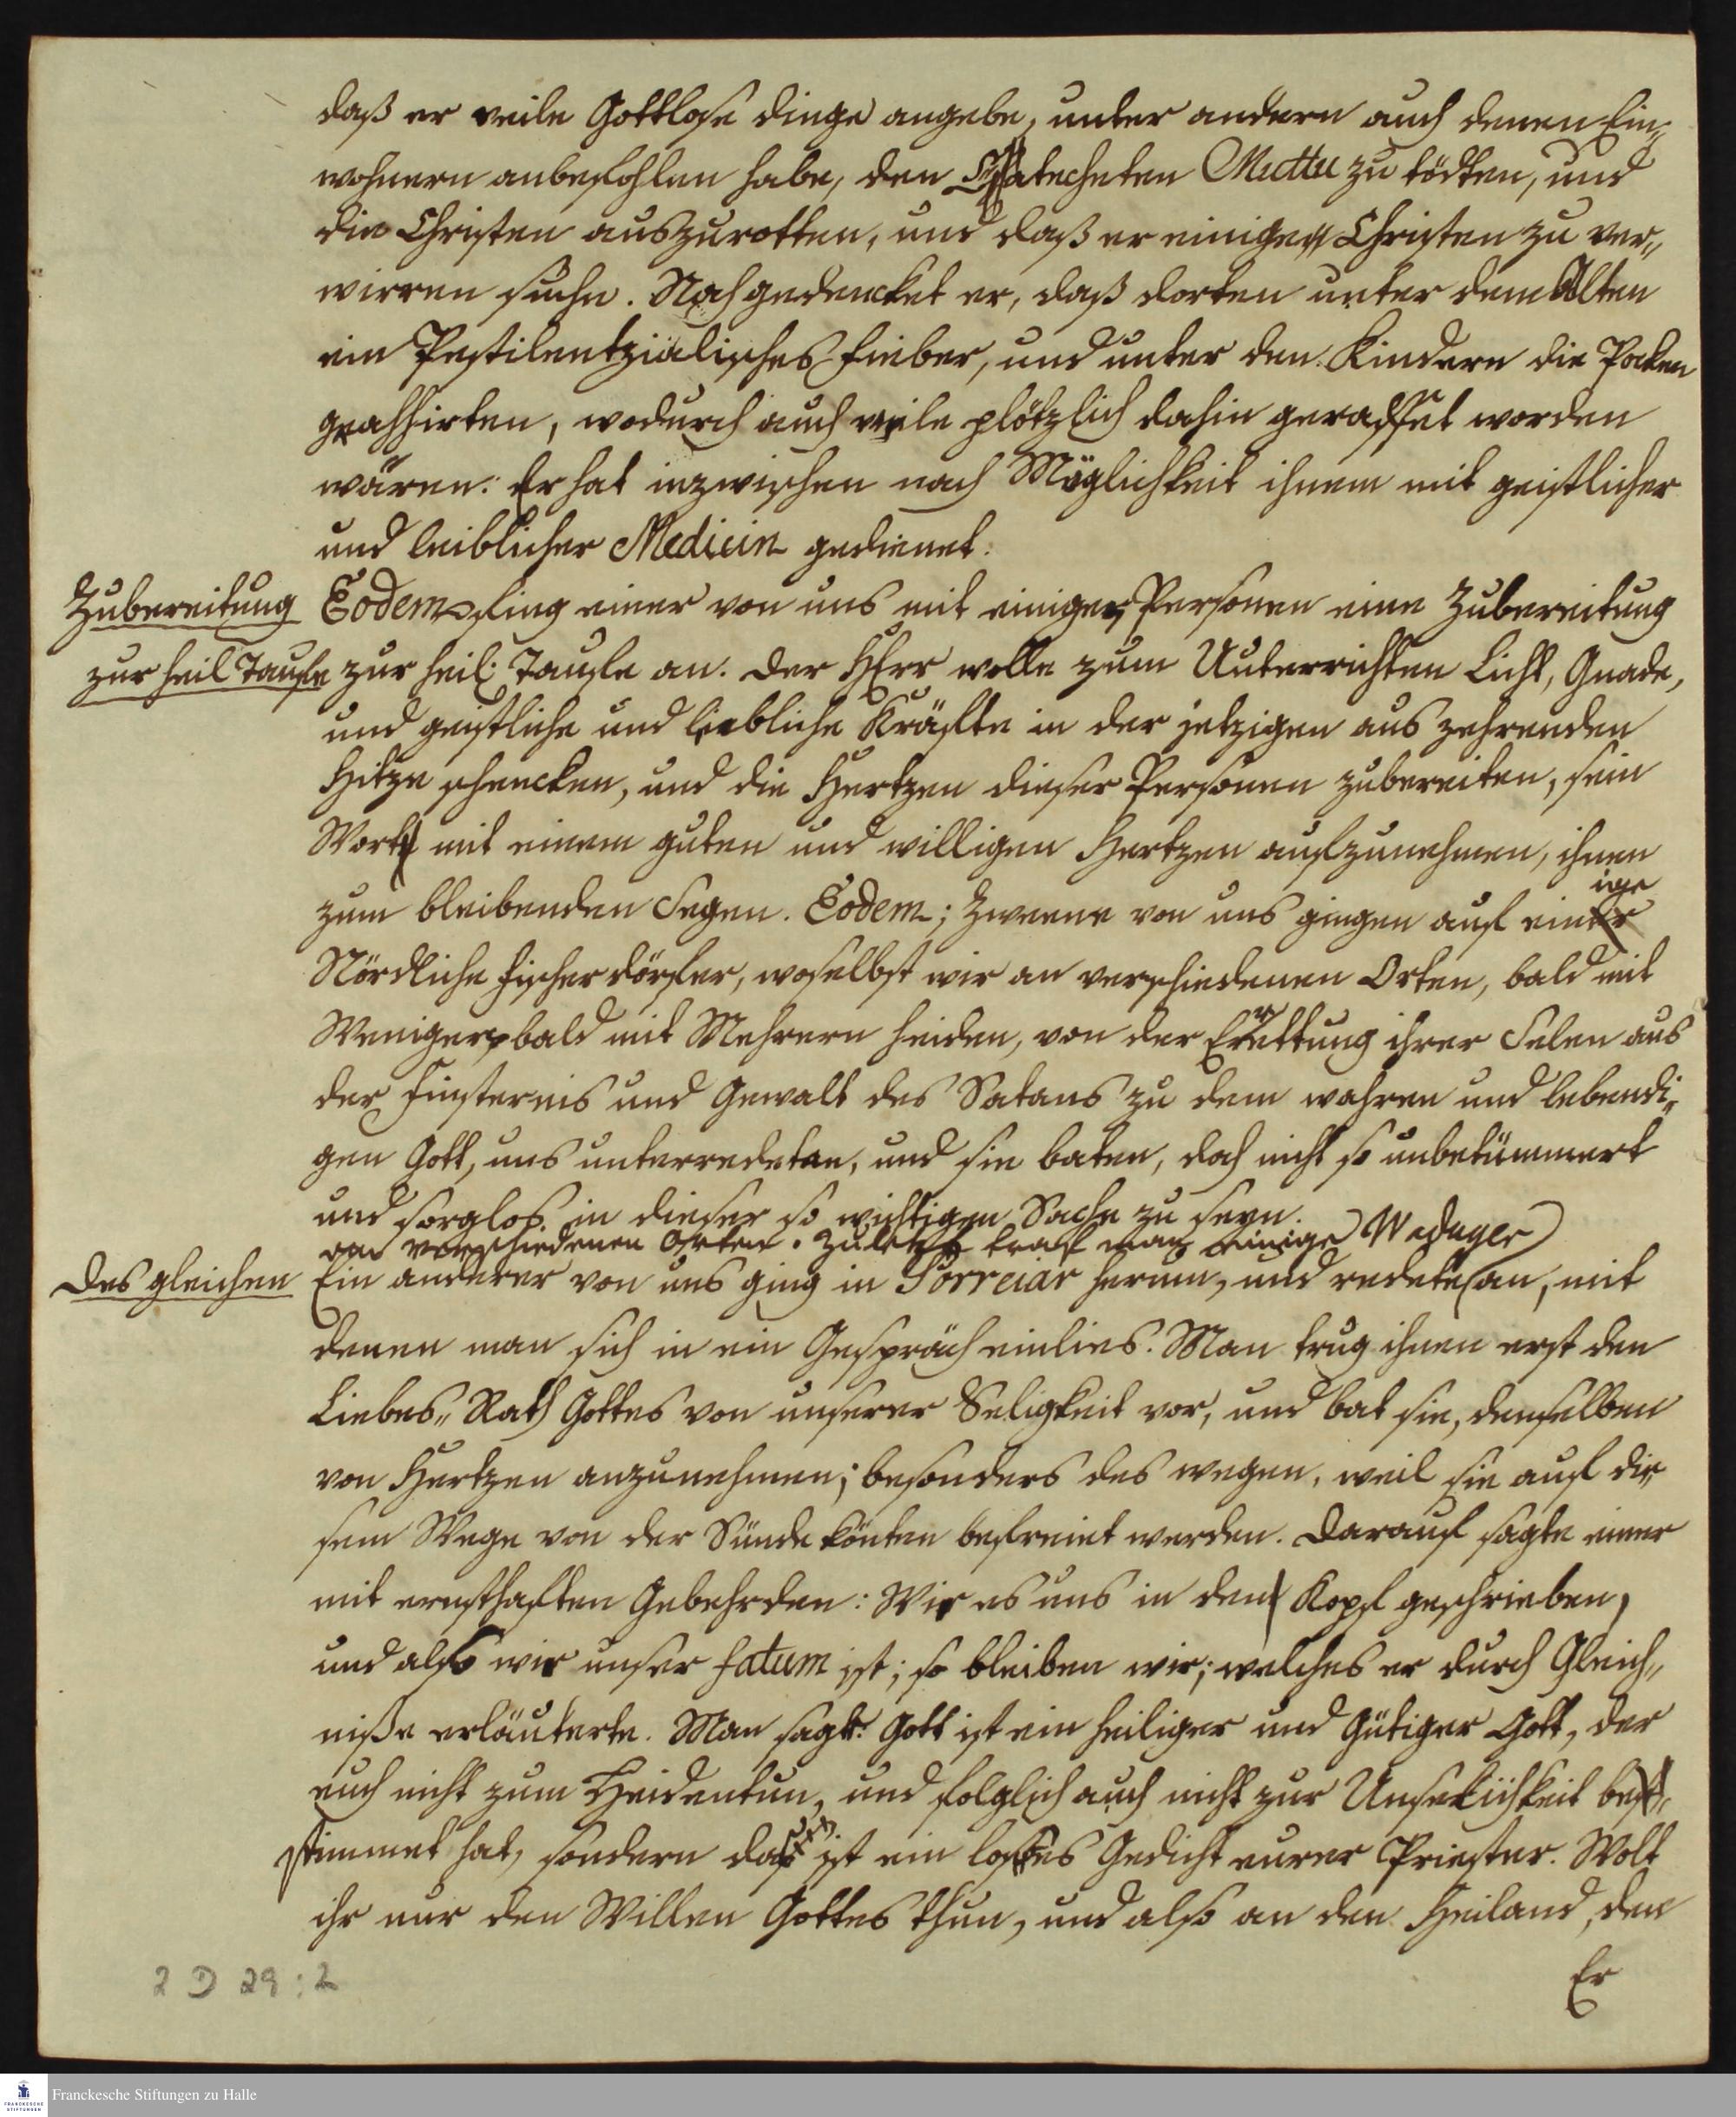 daß er veile Gottlose dinge angebe, unter andern auch denen Ein„
wohnern anbefohlen habe, den Catecheten Muttu zu tödten, und
die Christen auszurotten, und daß er einige Christen zu ver„
wirren suche. Noch gedencket er, daß dorten unter dem Alten
ein Pestilentzialisches Fieber, und unter den Kindern die Poken
grahsirten, wodurch auch veile plötzlich dahin geraffet worden
wären. Er hat inzwischen nach Möglichkeit ihnem mit geistlicher
und leiblicher Medicin gedienet.
Zubereitung
zur heil Taufe
Eodem fing einer von uns mit einigen Personen eine Zubereitung
zur heil: Taufe an. der HErr wolle zum Unterrichten Licht, Gnade,
und geistliche und liebliche Kräfte in der jetzigen aus zehrenden
Hitze schencken, und die Hertzen dieser Personen zubereiten, sein
Wort mit einem guten und willigen Hertzen aufzunehmen, ihnen
zum bleibenden Segen. Eodem; Zweene von uns gingen auf einige
Nördliche Fischer dörfer, woselbst wir an verschiedenen Orten, bald mit
Weniger, bald mit Mehrern Heiden, von der Errettung ihrer Selen aus
der Finsternis und Gewalt des Satans zu dem wahren und lebendi„
gen Gott, uns unterredeten, und sie baten, doch nicht so unbekümmert
und sorglos in dieser so wichtigen Sache zu seyn.
an verschiedenen Orten. Zuletzt traf man einige Waduger
des gleichen
Ein anderer von uns ging in Porreiar herum, und redete an, mit
denen man sich in ein Gespräch einlies. Man trug ihnen erst den
Liebes„ Rath Gottes von unserer Seligkeit vor, und bat sie, denselben
von Hertzen anzunehmen; besonders des wegen, weil sie auf die„
sem Wege von der Sünde könten befreiet werden. Darauf sagte einer
mit ernsthaften Gebehrden: Wie es uns in den Kopf geschrieben,
und also wie unser fatum ist; so bleiben wir; welches er durch Gleich„
niße erläuterte. Man sagte: Gott ist ein heiliger und Gütiger Gott, der
euch nicht zum Heidentun, und folglich auch nicht zur Unseliichkeit be„
stimmet hat, sondern das ist ein loses Gedicht eurer Priester. Wolt
ihr nur den Willen Gottes thun, und also an den Heiland, den
Er
2 D 29:2
Franckesche Stiftungen zu Halle